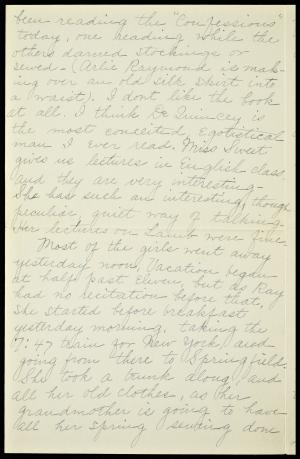 been reading the "Confessions"
today, one reading while the
others darned stockings or
sewed - (Arlie Raymond is mak-
ing over an old silk skirt into
a waist). I don't like the book
at all. I think De Quincey is
the most conceited, egotistical
man I ever read. Miss Sweet
gives us lectures in English class,
and they are very interesting -
She has such an interesting, though
peculiar quiet way of talking.
Her lectures on Lamb were fine.
Most of the girls went away
yesterday noon, Vacation began
at half past eleven, but as Ray
had no recitation before that,
she started before breakfast
yesterday morning, taking the
7:47 train for New York and
going from there to Springfield.
She took a trunk along, and
all her old clothes, as her
grandmother is going to have
all her spring sewing done